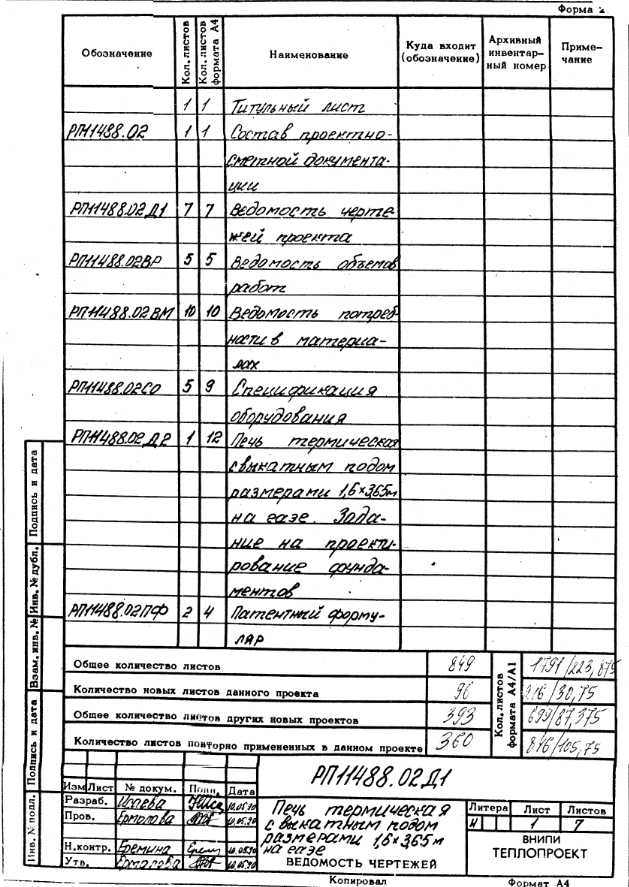 Форма 2
Обозначение Кол. листов Кол. листов формата А4 Наименование Куда входит (обозначение) Архивный инвентарный номер Примечание
1 1 Титульный лист
РП11488.02 1 1 Состав проектно-
сметной документа-
ции
РП11488.02Д1 7 7 Ведомость черте-
жей проекта
РП11488.02ВР 5 5 Ведомость объемов
работ
РП11488.02ВМ 10 10 Ведомость потреб
ности в материа-
лах
РП11488.02СО 5 9 Спецификация
оборудования
РП11488.02Д2 1 12 Печь термическая
с выкатным подом
размерами 1,6×3,65м
на газе. Зада-
ние на проекти-
рование фунда-
ментов
РП11488.02ПФ 2 4 Патентный форму-
ляр
Общее количество листов 849 Кол. листов формата А4/А1 1791/223,875
Количество новых листов данного проекта 96 /30,75
Общее количество листов других новых проектов 393 699/87,375
Количество листов повторно примененных в данном проекте 360 846/105,75
Инв. № подл. Подпись и дата Взам. инв. № Инв. № дубл. Подпись и дата
РП11488.02Д1
Изм Лист № докум. Подп. Дата
Разраб. Исаева 10.05.90
Пров. Ермолова 10.05.90
Н.контр. Еремина 10.05.90
Утв. Ермолова 10.05.90
Печь термическая
с выкатным подом
размерами 1,6×3,65м
на газе
ВЕДОМОСТЬ ЧЕРТЕЖЕЙ
Литера Лист Листов
И 1 7
ВНИПИ
ТЕПЛОПРОЕКТ
Копировал Формат А4